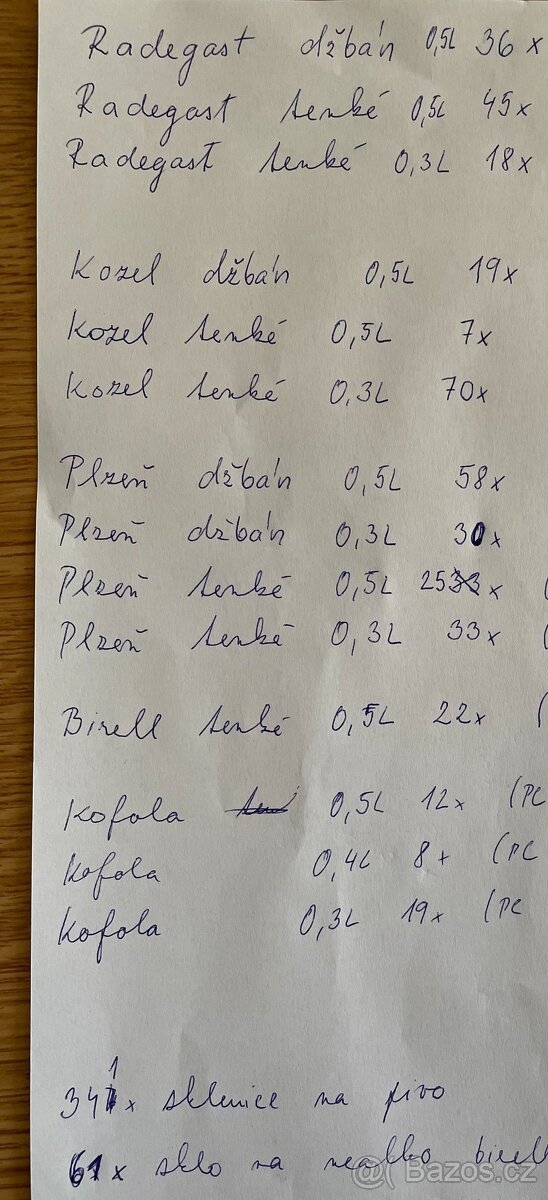 Radegast džbán 0,5L 36x
Radegast tenké 0,5L 45x
Radegast tenké 0,3L 18x
Kozel džbán 0,5L 19x
Kozel tenké 0,5L 7x
Kozel tenké 0,3L 70x
Plzeň džbán 0,5L 58x
Plzeň džbán 0,3L 30x
Plzeň tenké 0,5L 25x (
Plzeň tenké 0,3L 33x (
Birell tenké 0,5L 22x (
Kofola 0,5L 12x (PC
Kofola 0,4L 8x (PC
Kofola 0,3L 19x (PC
341x sklenice na pivo
61x sklo na nealko birell
Bazos.cz